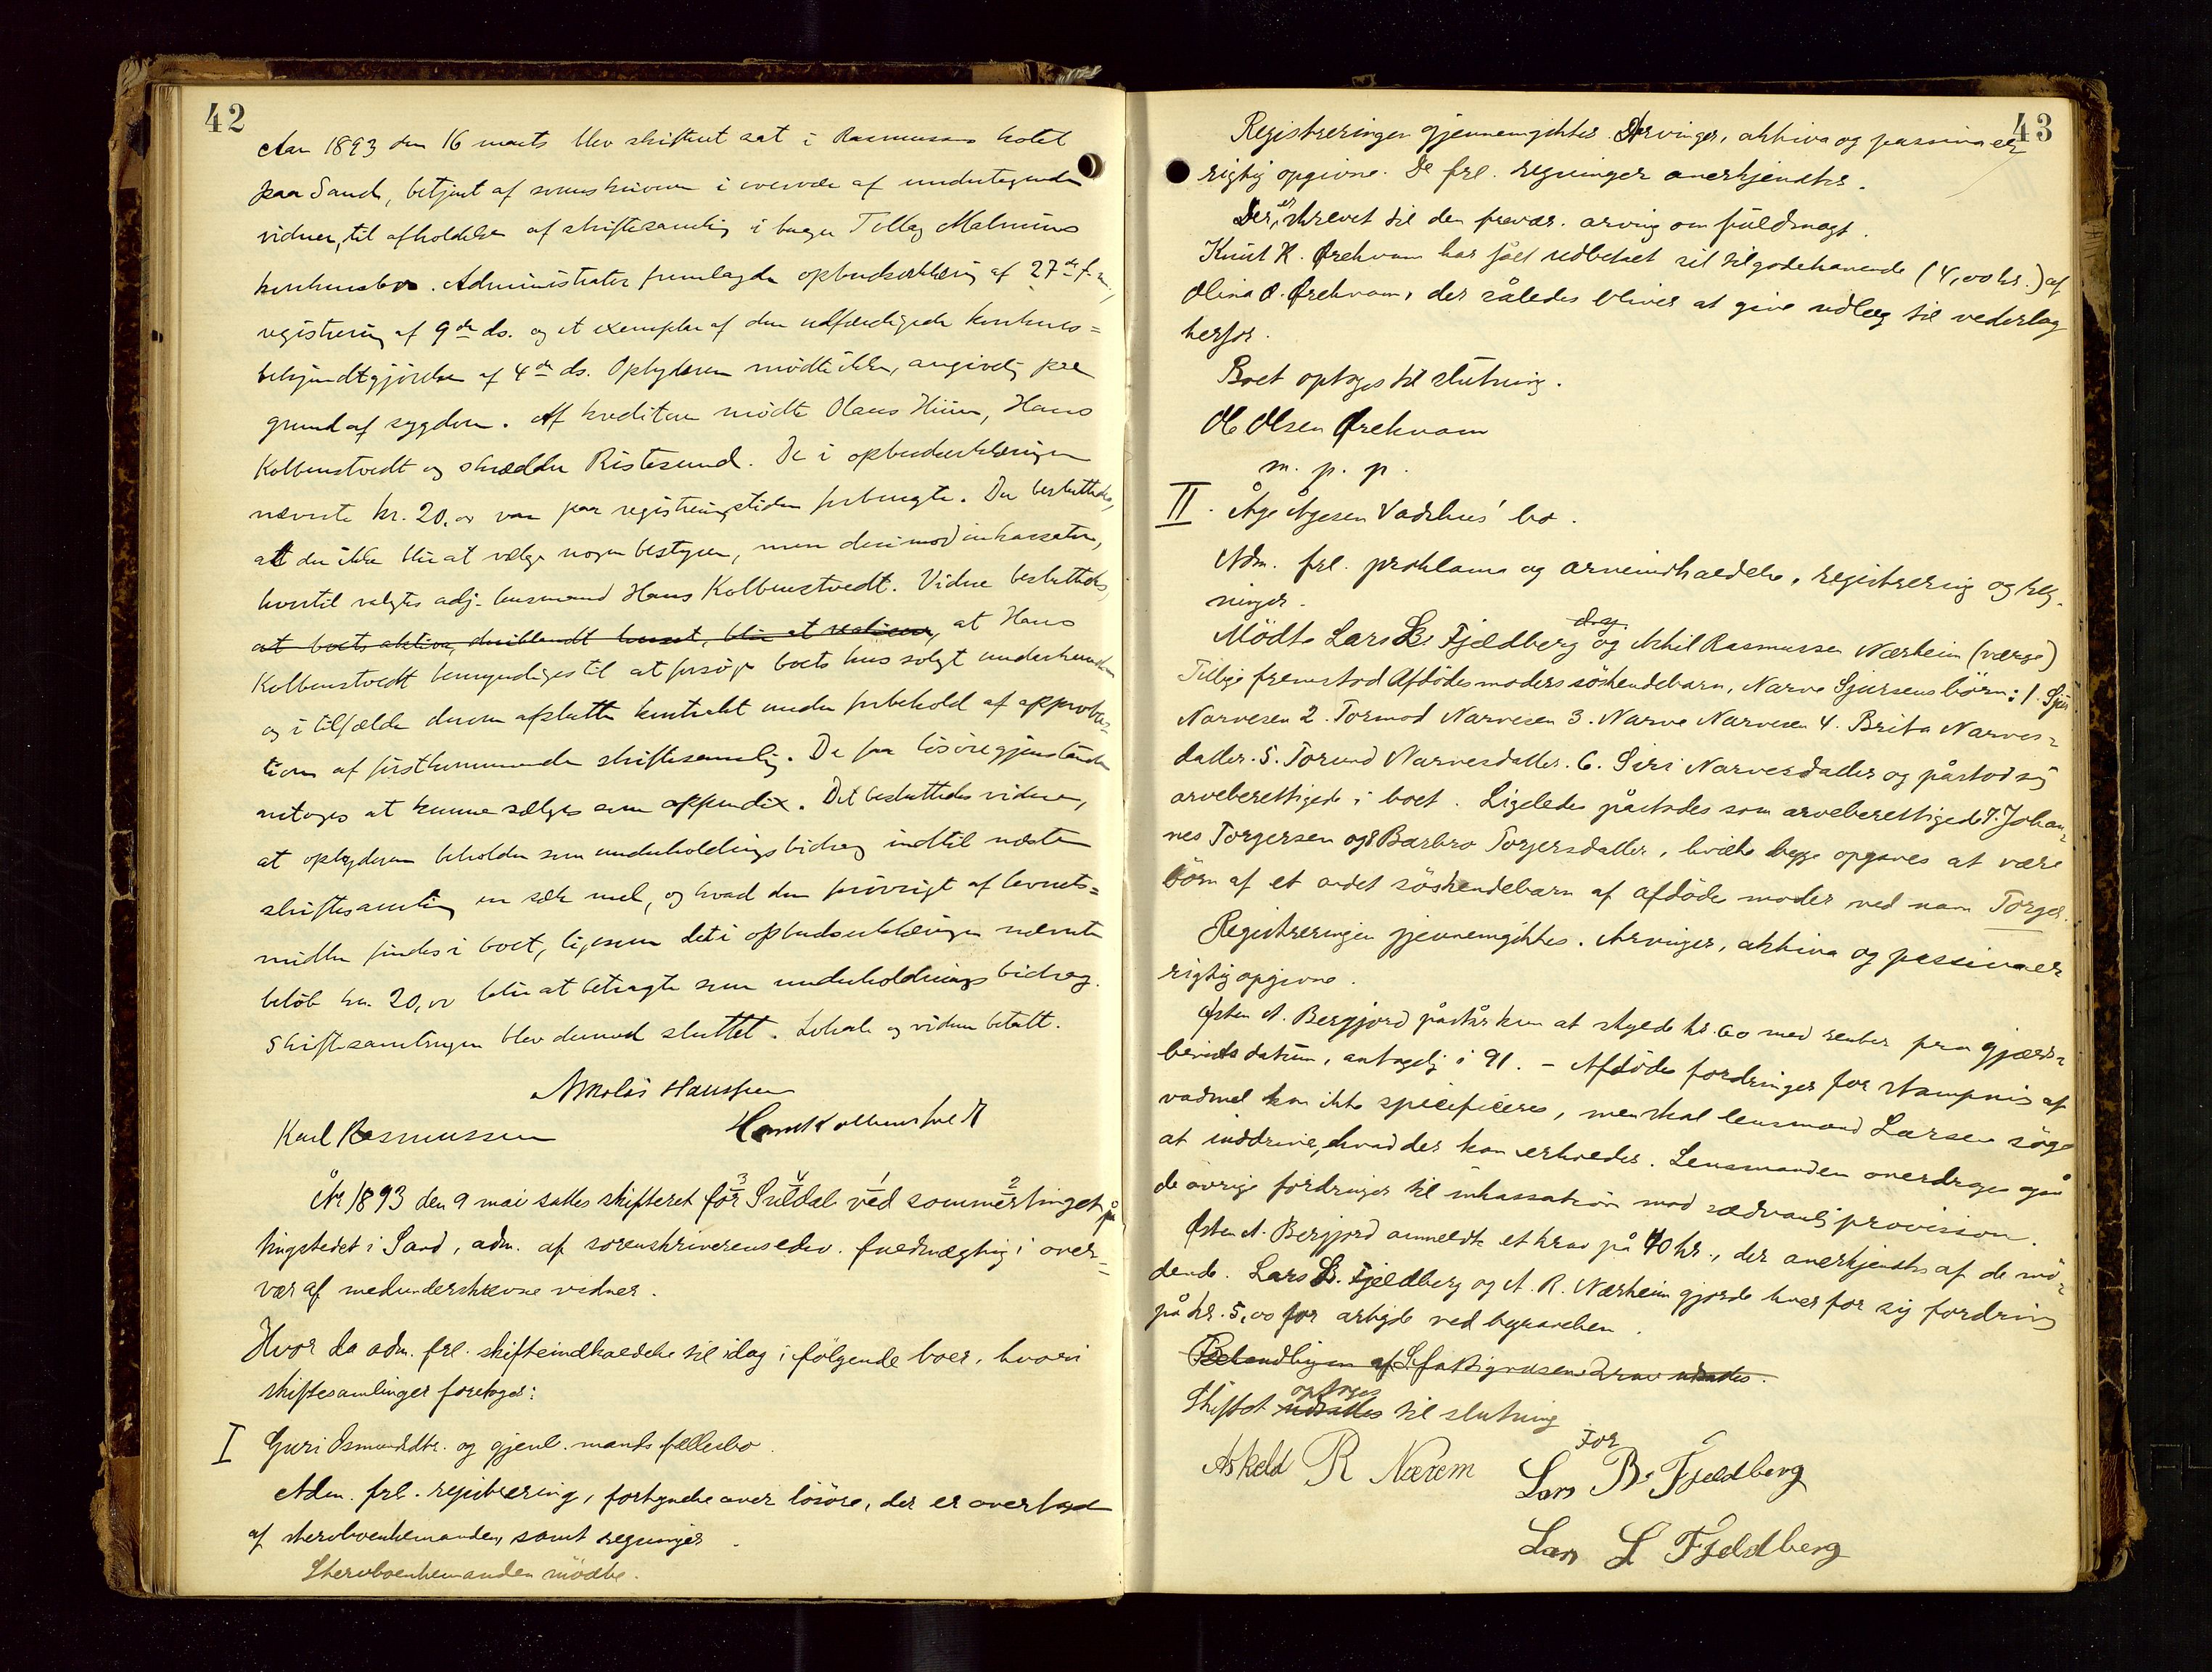 42
Aar 1893 den 16 marts blev skifteret sat i Rasmussens hotel
paa Sand, betjent af sorenskriveren i overvær af undertegnede
vidner, til afholdelse af skiftesamling i Tollag Malmins
konkursbo. Administrator fremlagde opbudserklæring af 27de f. m.,
registrering af 9de ds. og et exemplar af den udfærdigede konkurs=
bekjendtgjörelse af 4de ds. Opbyderen mödte ikke, angivelig paa
grund af sygdom. Af kreditorer mödte Olaus Hiim, Hans
Kolbenstvedt og skrædder Ristesund. De i opbudserklæringen
nævnte kr. 20,00 var paa registreringstiden forbrugte. Der besluttedes,
at der ikke blir at vælge nogen bestyrer, men derimod inkassator,
hvortil valgtes adj. lensmand Hans Kolbenstvedt. Videre besluttedes,
at boets aktiva, deriblandt huset, blir at realisere, at Hans
Kolbenstvedt bemyndiges til at forsöge boets hus solgt underhaanden
og i tilfælde derom afslutte kontrakt under forbehold af approba=
tion af förstkommende skiftesamling. De faa lösöregjenstande
antages at kunne sælges som appendix. Det besluttedes videre,
at opbyderen beholder som underholdingsbidrag indtil næste
skiftesamling en sæk mel, og hvad der forövrigt af levnets=
midler findes i boet, ligesom det i opbudserklæringen nævnte
belöb kr. 20,00 blir at betragte som underholdnings bidrag.
Skiftesamlingen blev dermed sluttet. Lokale og vidner betalt.
Nikolai Hanssen
Karl Rasmussen Hans Kolbenstvedt
År 1893 den 9 mai sattes skifteret for Suldal ved sommertinget på
3 4 1 2
tingstedet i Sand, adm. af sorenskriverens edsv. fuldmægtig i over=
vær af medunderskrevne vidner.
Hvor da adm. frl. skifteindkaldelse til idag i fölgende boer, hvori
skiftesamlinger foretages:
I Guri Osmundsdtr. og gjenl. mands fællesbo.
Adm. frl. registrering, fortegnelse over lösöre, der er overtaget
af stervboenkemanden, samt regninger.
Stervboenkemanden mödte.
43
Registreringen gjennemgikkes. Arvinger, aktiva og passiva er
rigtig opgivne. De frl. regninger anerkjendtes.
Der er skrevet til den fravær. arving om fuldmagt.
Knut K. Örekvam har fået udbetalt sit tilgodehavende (4,00 kr.) af
Olina O. Örekvam, der således bliver at give udlæg til vederlag
herfor.
Boet optages til slutning.
Ole Olsen Ørekvam
m. p. p.
II. Åge Ågesen Vadshus' bo.
Adm. frl. proklama og arveindkaldelse, registrering og reg=
ninger.
Mödte Lars B. Fjeldberg d. y. og Askil Rasmussen Nærheim (værge)
Tillige fremstod Afdödes moders söskendebarn, Narve Sjursens börn: 1. Sjur
Narvesen 2. Tormod Narvesen 3. Narve Narvesen 4. Brita Narves=
datter. 5. Torund Narvesdatter. 6. Siri Narvesdatter og påstod sig
arveberettigede i boet. Ligeledes påstodes som arveberettigede 7. Johan=
nes Torgersen og 8 Barbro Torgersdatter, hvilke begge opgaves at være
börn af et andet söskendebarn af afdödes moder ved navn Torger.
Registreringen gjennemgikkes. Arvinger, aktiva og passiva er
rigtig opgivne.
Østen A. Bergjord påstår kun at skylde kr. 60 med renter fra gjælds=
bevists datum, antagelig i 91. – Afdödes fordringer for stampning af
vadmel kan ikke specificeres, men skal lensmand Larsen söge
at inddrive, hvad der kan erholdes. Lensmanden overdrages også
de övrige fordringer til inkassation mod sædvanlig provision.
Østen A. Bergjord anmeldte et krav på 40 kr., der anerkjendtes af de mö=
dende. Lars B. Fjeldberg og A. R. Nærheim gjorde hver for sig fordring
på kr. 5,00 for arbeide ved begravelsen.
Behandlingen af fattigvæsenets krav
Skiftet udsattes optages til slutning
Askeld R Nærem For Lars B. Fjeldberg
Lars L Fjeldberg